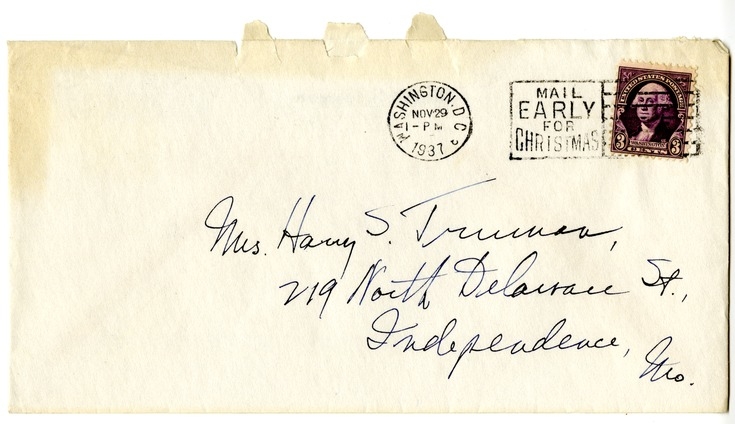 WASHINGTON, D.C.
NOV 29
1-PM
1937
MAIL
EARLY
FOR
CHRISTMAS
UNITED STATES POSTAGE
WASHINGTON
3 CENTS 3
Mrs. Harry S. Truman,
219 North Delaware St.,
Independence,
Mo.